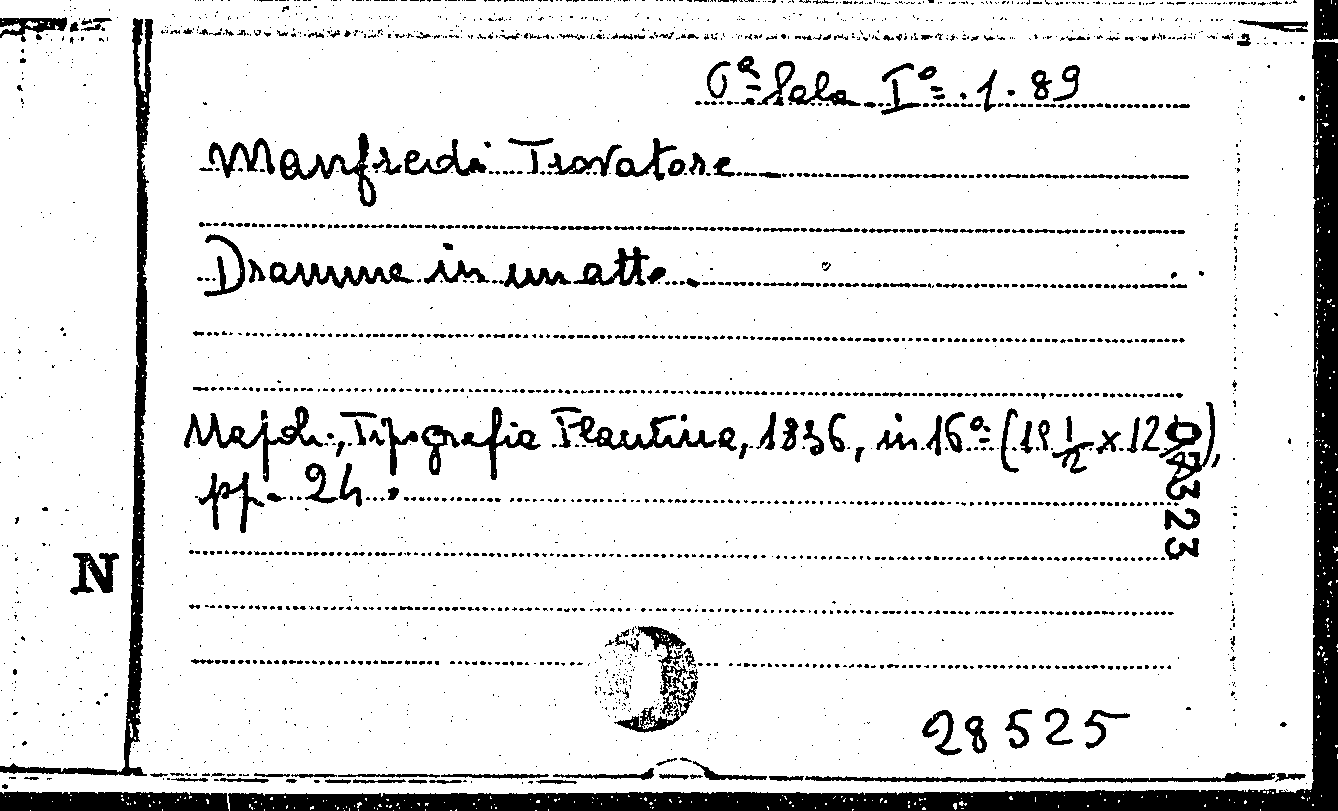 6ª Sala Iº. 1. 89
Manfredi Trovatore
Dramma in un atto.
Napoli, Tipografia Flautina, 1836, in 16º (19 1/2 x 12
pp. 24.
323
N
28525